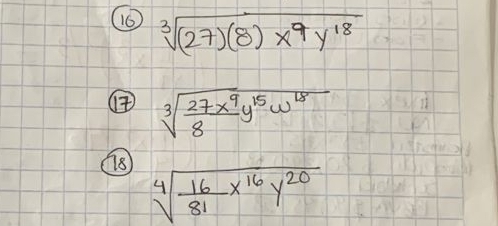 16 ∛((27)(8) x⁹ y¹⁸)
17 ∛(27x⁹/8 y¹⁵ w¹⁸)
18 ∜(16/81 x¹⁶ y²⁰)